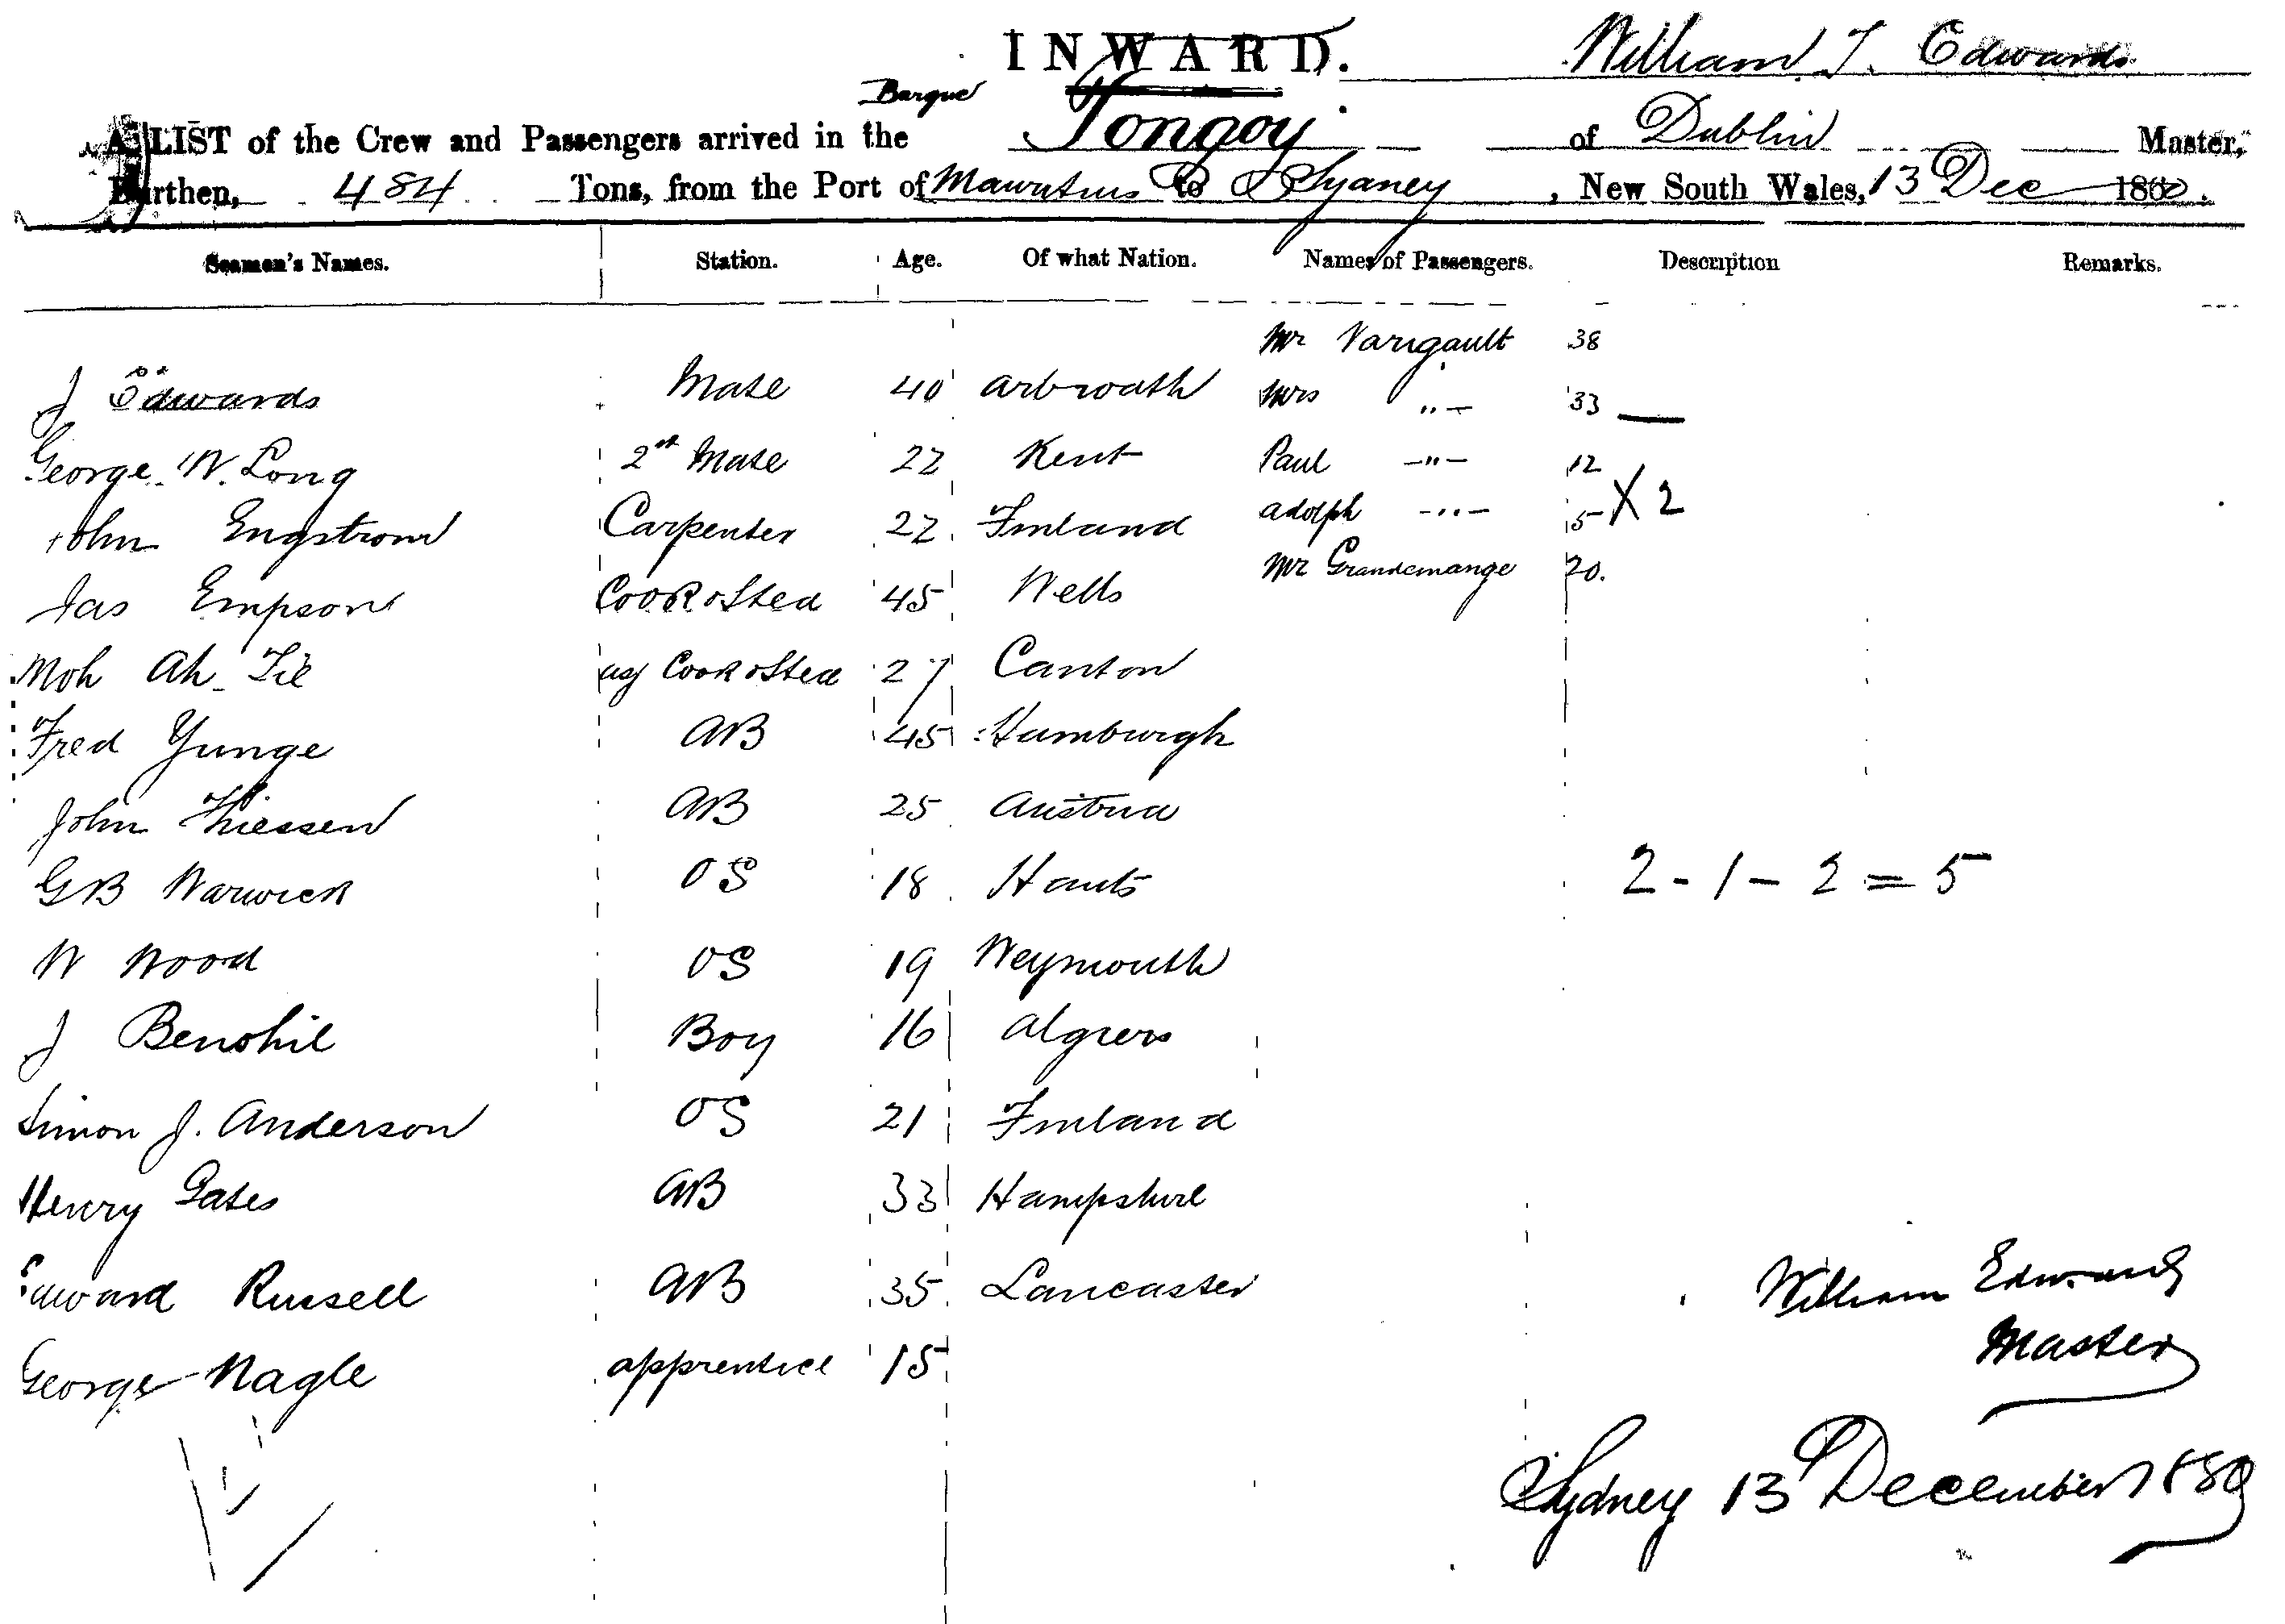 INWARD. William T. Edwards
Barque
A LIST of the Crew and Passengers arrived in the Tongoy of Dublin Master,
Burthen, 484 Tons, from the Port of Mauritius to Sydney, New South Wales, 13 Dec 1880.
Seamen's Names. Station. Age. Of what Nation. Names of Passengers. Description Remarks.
Mr Varigault 38
J Edwards Mate 40 Arbroath Mrs "- 33 —
George W. Long 2nd Mate 22 Kent Paul -"- 12
John Engstrom Carpenter 22 Finland Adolph -"- 5 X 2
Mr Grandemange 20.
Jas Empson Cook & Sted 45 Wells
Moh Ah Tie asst Cook & Sted 27 Canton
Fred Yunge AB 45 Hamburgh
John Thiessen AB 25 Austria
GB Warwick OS 18 Hants 2 - 1 - 2 = 5
W Wood OS 19 Weymouth
J Benshil Boy 16 Algiers
Simon J. Anderson OS 21 Finland
Henry Gates AB 33 Hampshire
Edward Russell AB 35 Lancaster
William Edwards
Master
George Nagle apprentice 15
Sydney 13 December 1880